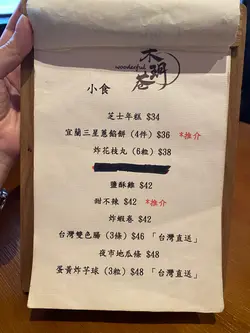 木明巷
wonderful
小食
芝士年糕 $34
宜蘭三星蔥餡餅 (4件) $36 *推介
炸花枝丸 (6粒) $38
鹽酥雞 $42
甜不辣 $42 *推介
炸蝦卷 $42
台灣雙色腸 (3條) $46 「台灣直送」
夜市地瓜條 $48
蛋黃炸芋球 (3粒) $48 「台灣直送」